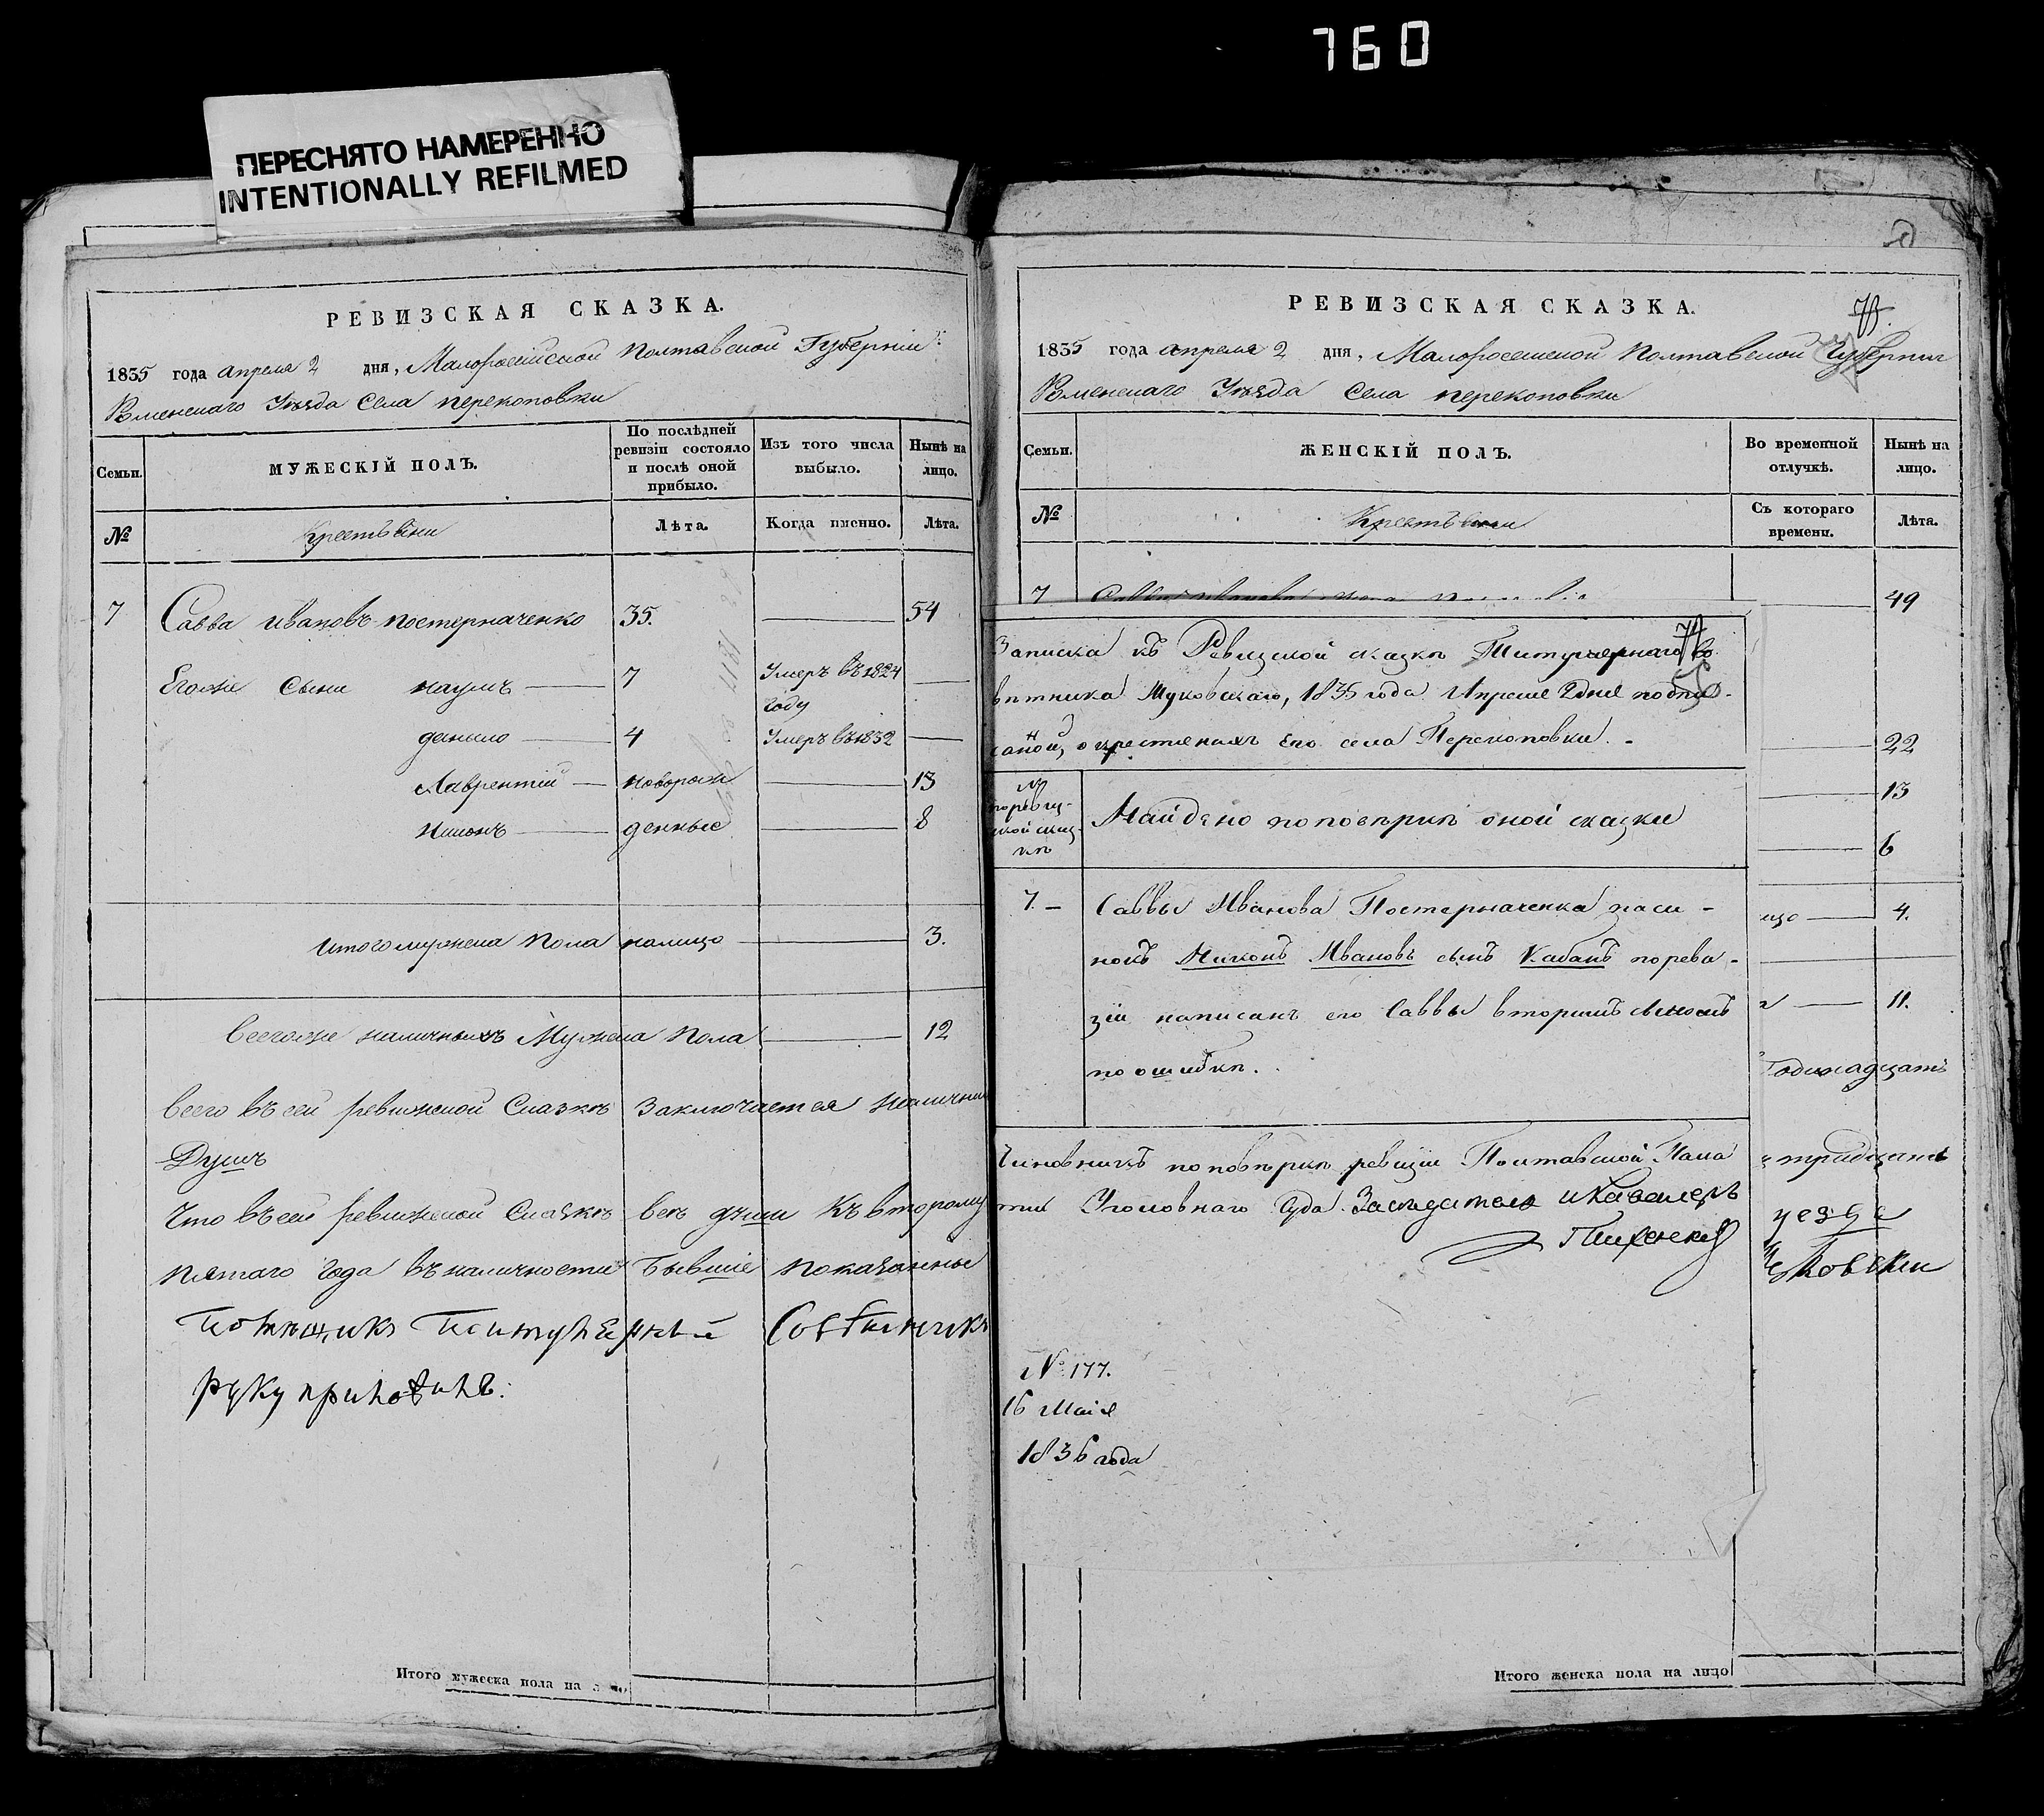 760
ПЕРЕСНЯТО НАМЕРЕННО
INTENTIONALLY REFILMED
РЕВИЗСКАЯ СКАЗКА.
1835 года апреля 2 дня, Малоросейской Полтавской Губернии
Роменскаго Уезда Села перекоповки
Семьи.
МУЖЕСКІЙ ПОЛЪ.
По послѣдней ревизіи состояло и послѣ оной прибыло.
Изъ того числа выбыло.
Нынѣ на лицо.
№
Крестьяни
Лѣта.
Когда именно.
Лѣта.
7 Савва ивановъ постерначенко 35. 54
Егоже сыни наумъ 7 Умеръ въ 1824 году
данило 4 Умеръ въ 1832
Лаврентій новорож 13
никонъ денные 8
итого мужеска пола налицо 3.
всегоже наличныхъ Мужеска пола 12
всего въ сей ревижской Сказкѣ заключается наличн
Душъ
Что въ сей ревижской Сказкѣ всѣ души къ второму
пятаго года въ наличности бывшіе показанные
Помѣщикъ Титулярный Совѣтникъ
руку приложилъ:
Итого мужеска пола на лицо
РЕВИЗСКАЯ СКАЗКА.
1835 года апреля 2 дня, Малоросейской Полтавской Губернии
Роменскаго Уезда Села перекоповки
Семьи.
ЖЕНСКІЙ ПОЛЪ.
Во временной отлучкѣ.
Нынѣ на лицо.
№
Крестьяни
Съ котораго времени.
Лѣта.
7 49
Записка къ Ревизской сказкѣ Титулярнаго Со
вѣтника Муковскаго, 1835 года Апреля 2 дня подпи-
санной, о крестьянахъ его села Перекоповки.
22
№ по ревиз-
ской сказ-
кѣ
Найдено по повѣркѣ оной сказки
13
6
7. Саввы Иванова Постерначенка паси-
нокъ Никонъ Ивановъ сынъ Кабанъ по реви-
зіи написанъ его Саввы вторымъ сыномъ
по ошибкѣ.
цо 4.
11.
одинадцать
Чиновникъ по повѣркѣ ревизіи Полтавской Пала
ты Уголовнаго Суда Засѣдатель и Кавалеръ
тридцать
уезда
№ 177.
16 Маія
1836 года
Итого женска пола на лицо